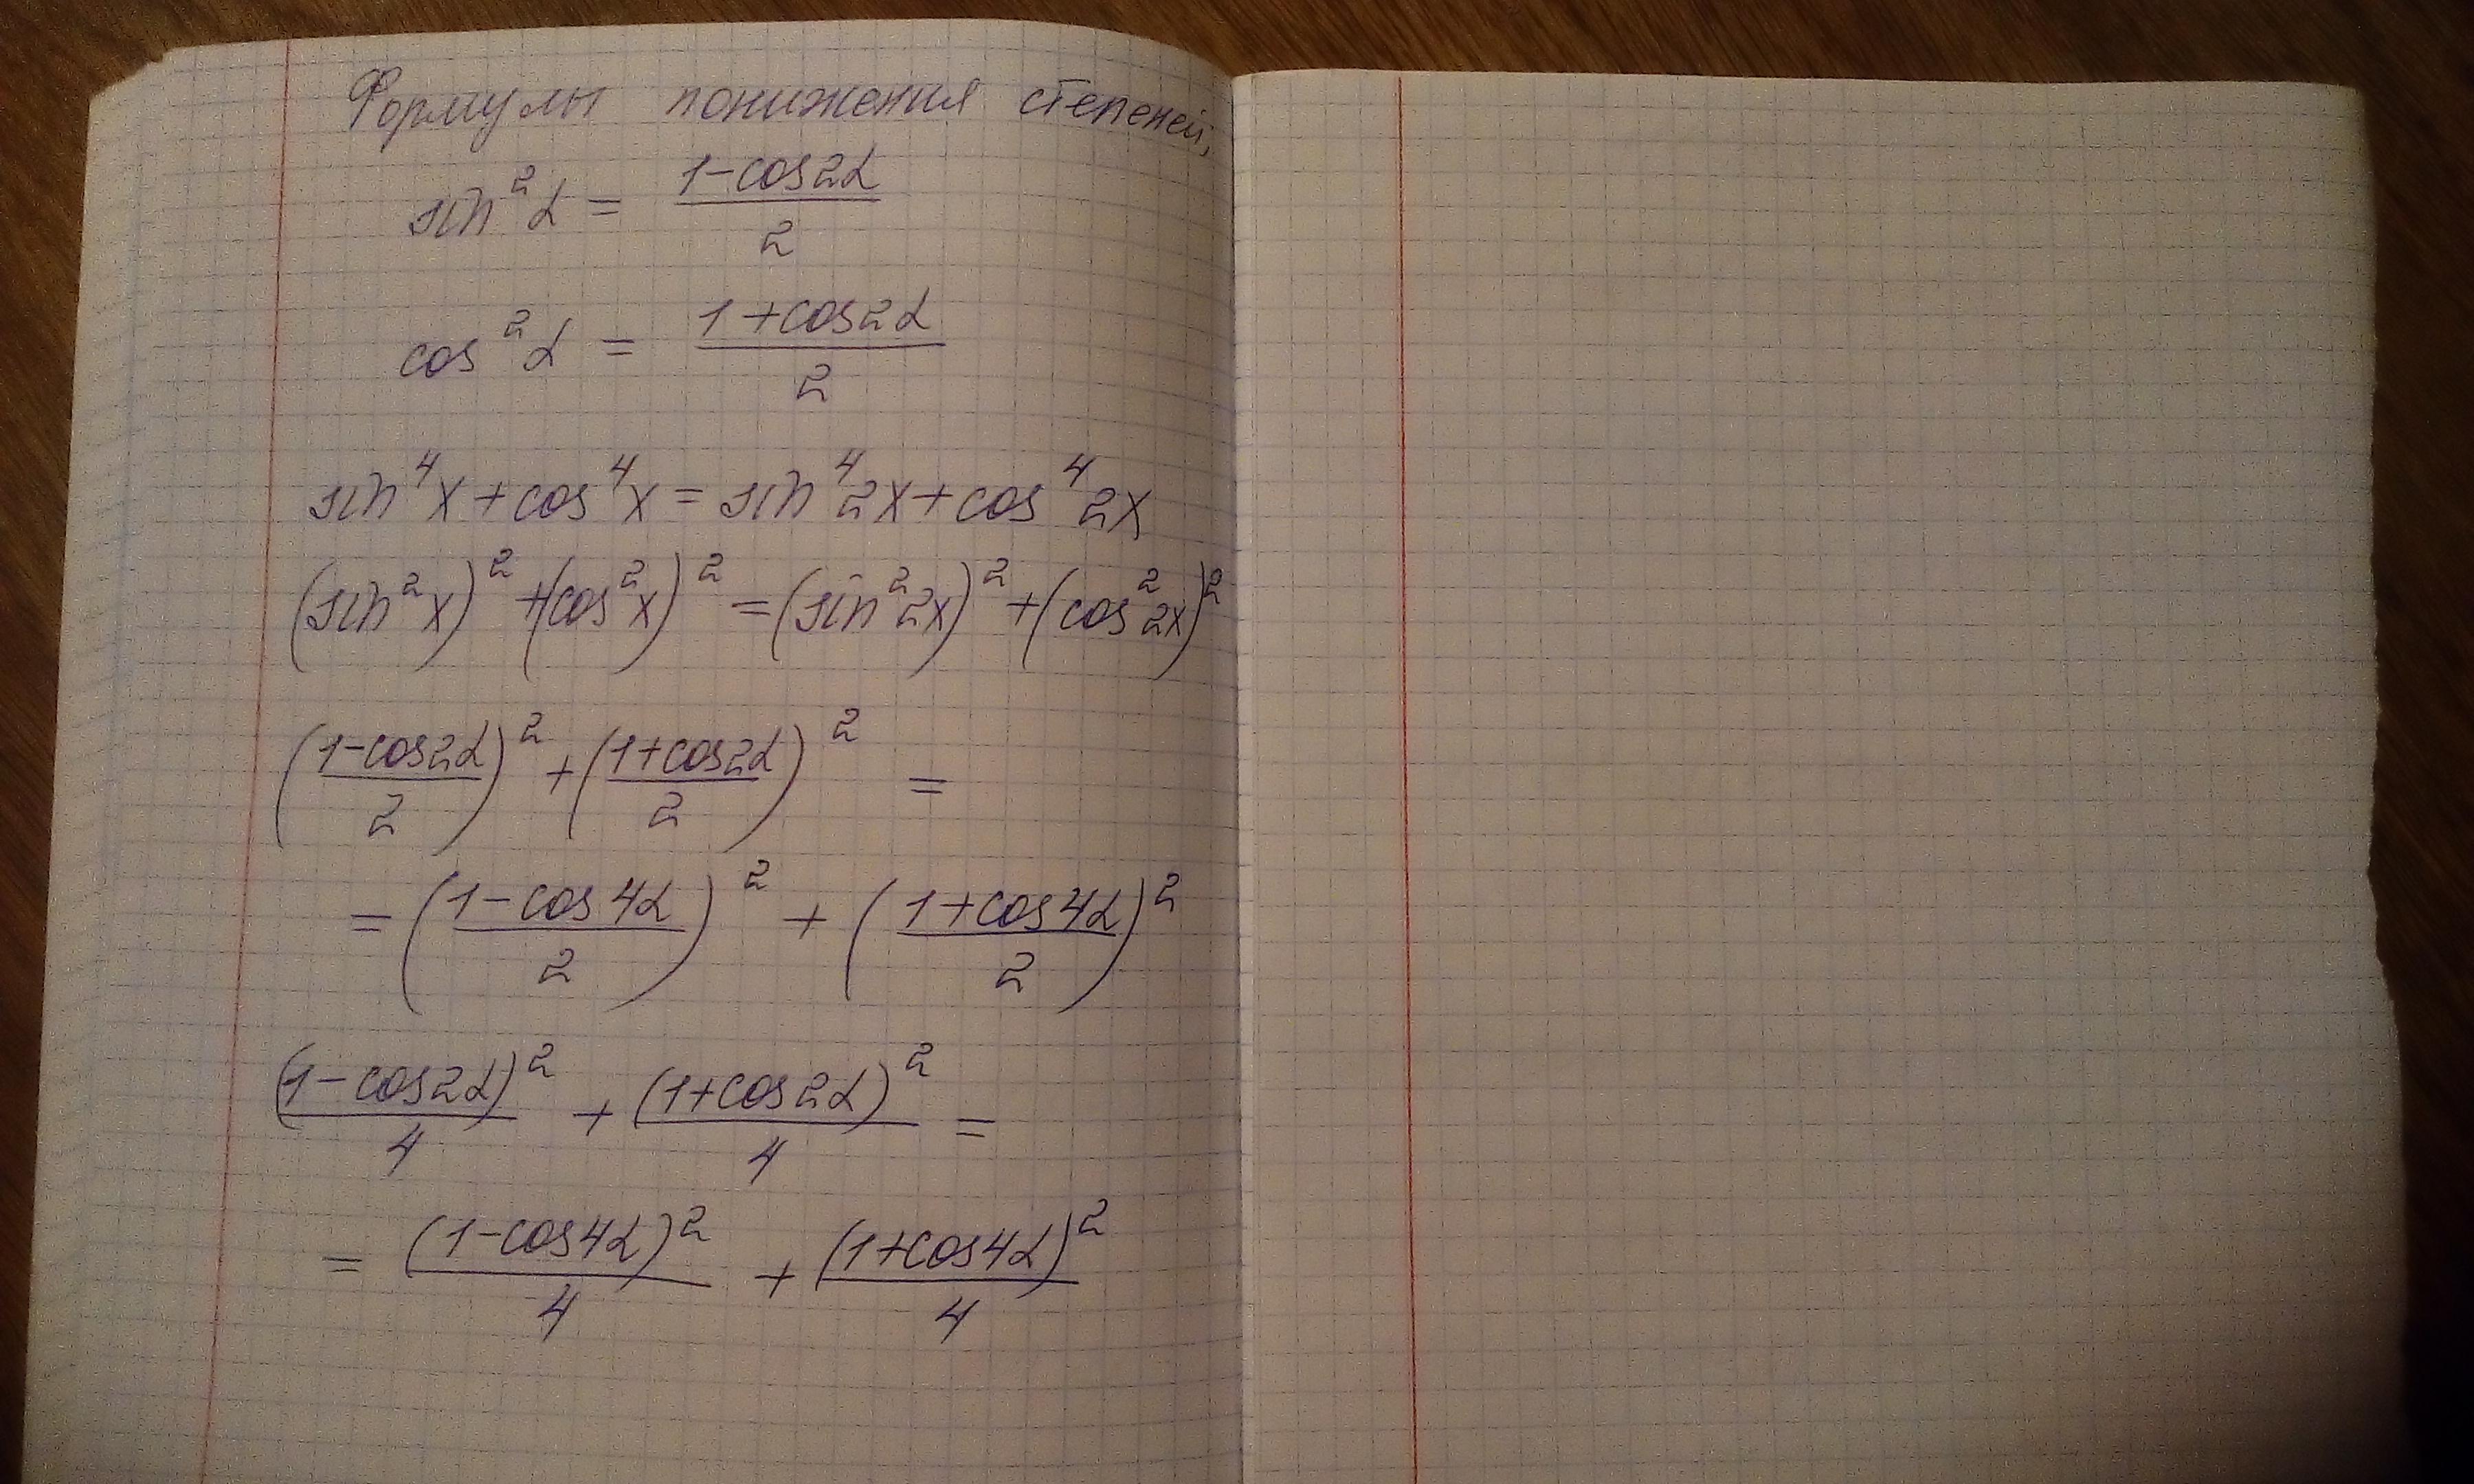 Формулы понижения степеней,
sin²α = (1-cos2α)/2
cos²α = (1+cos2α)/2
sin⁴x+cos⁴x = sin⁴2x+cos⁴2x
(sin²x)²+(cos²x)² = (sin²2x)²+(cos²2x)²
((1-cos2α)/2)² + ((1+cos2α)/2)² =
= ((1-cos4α)/2)² + ((1+cos4α)/2)²
(1-cos2α)²/4 + (1+cos2α)²/4 =
= (1-cos4α)²/4 + (1+cos4α)²/4